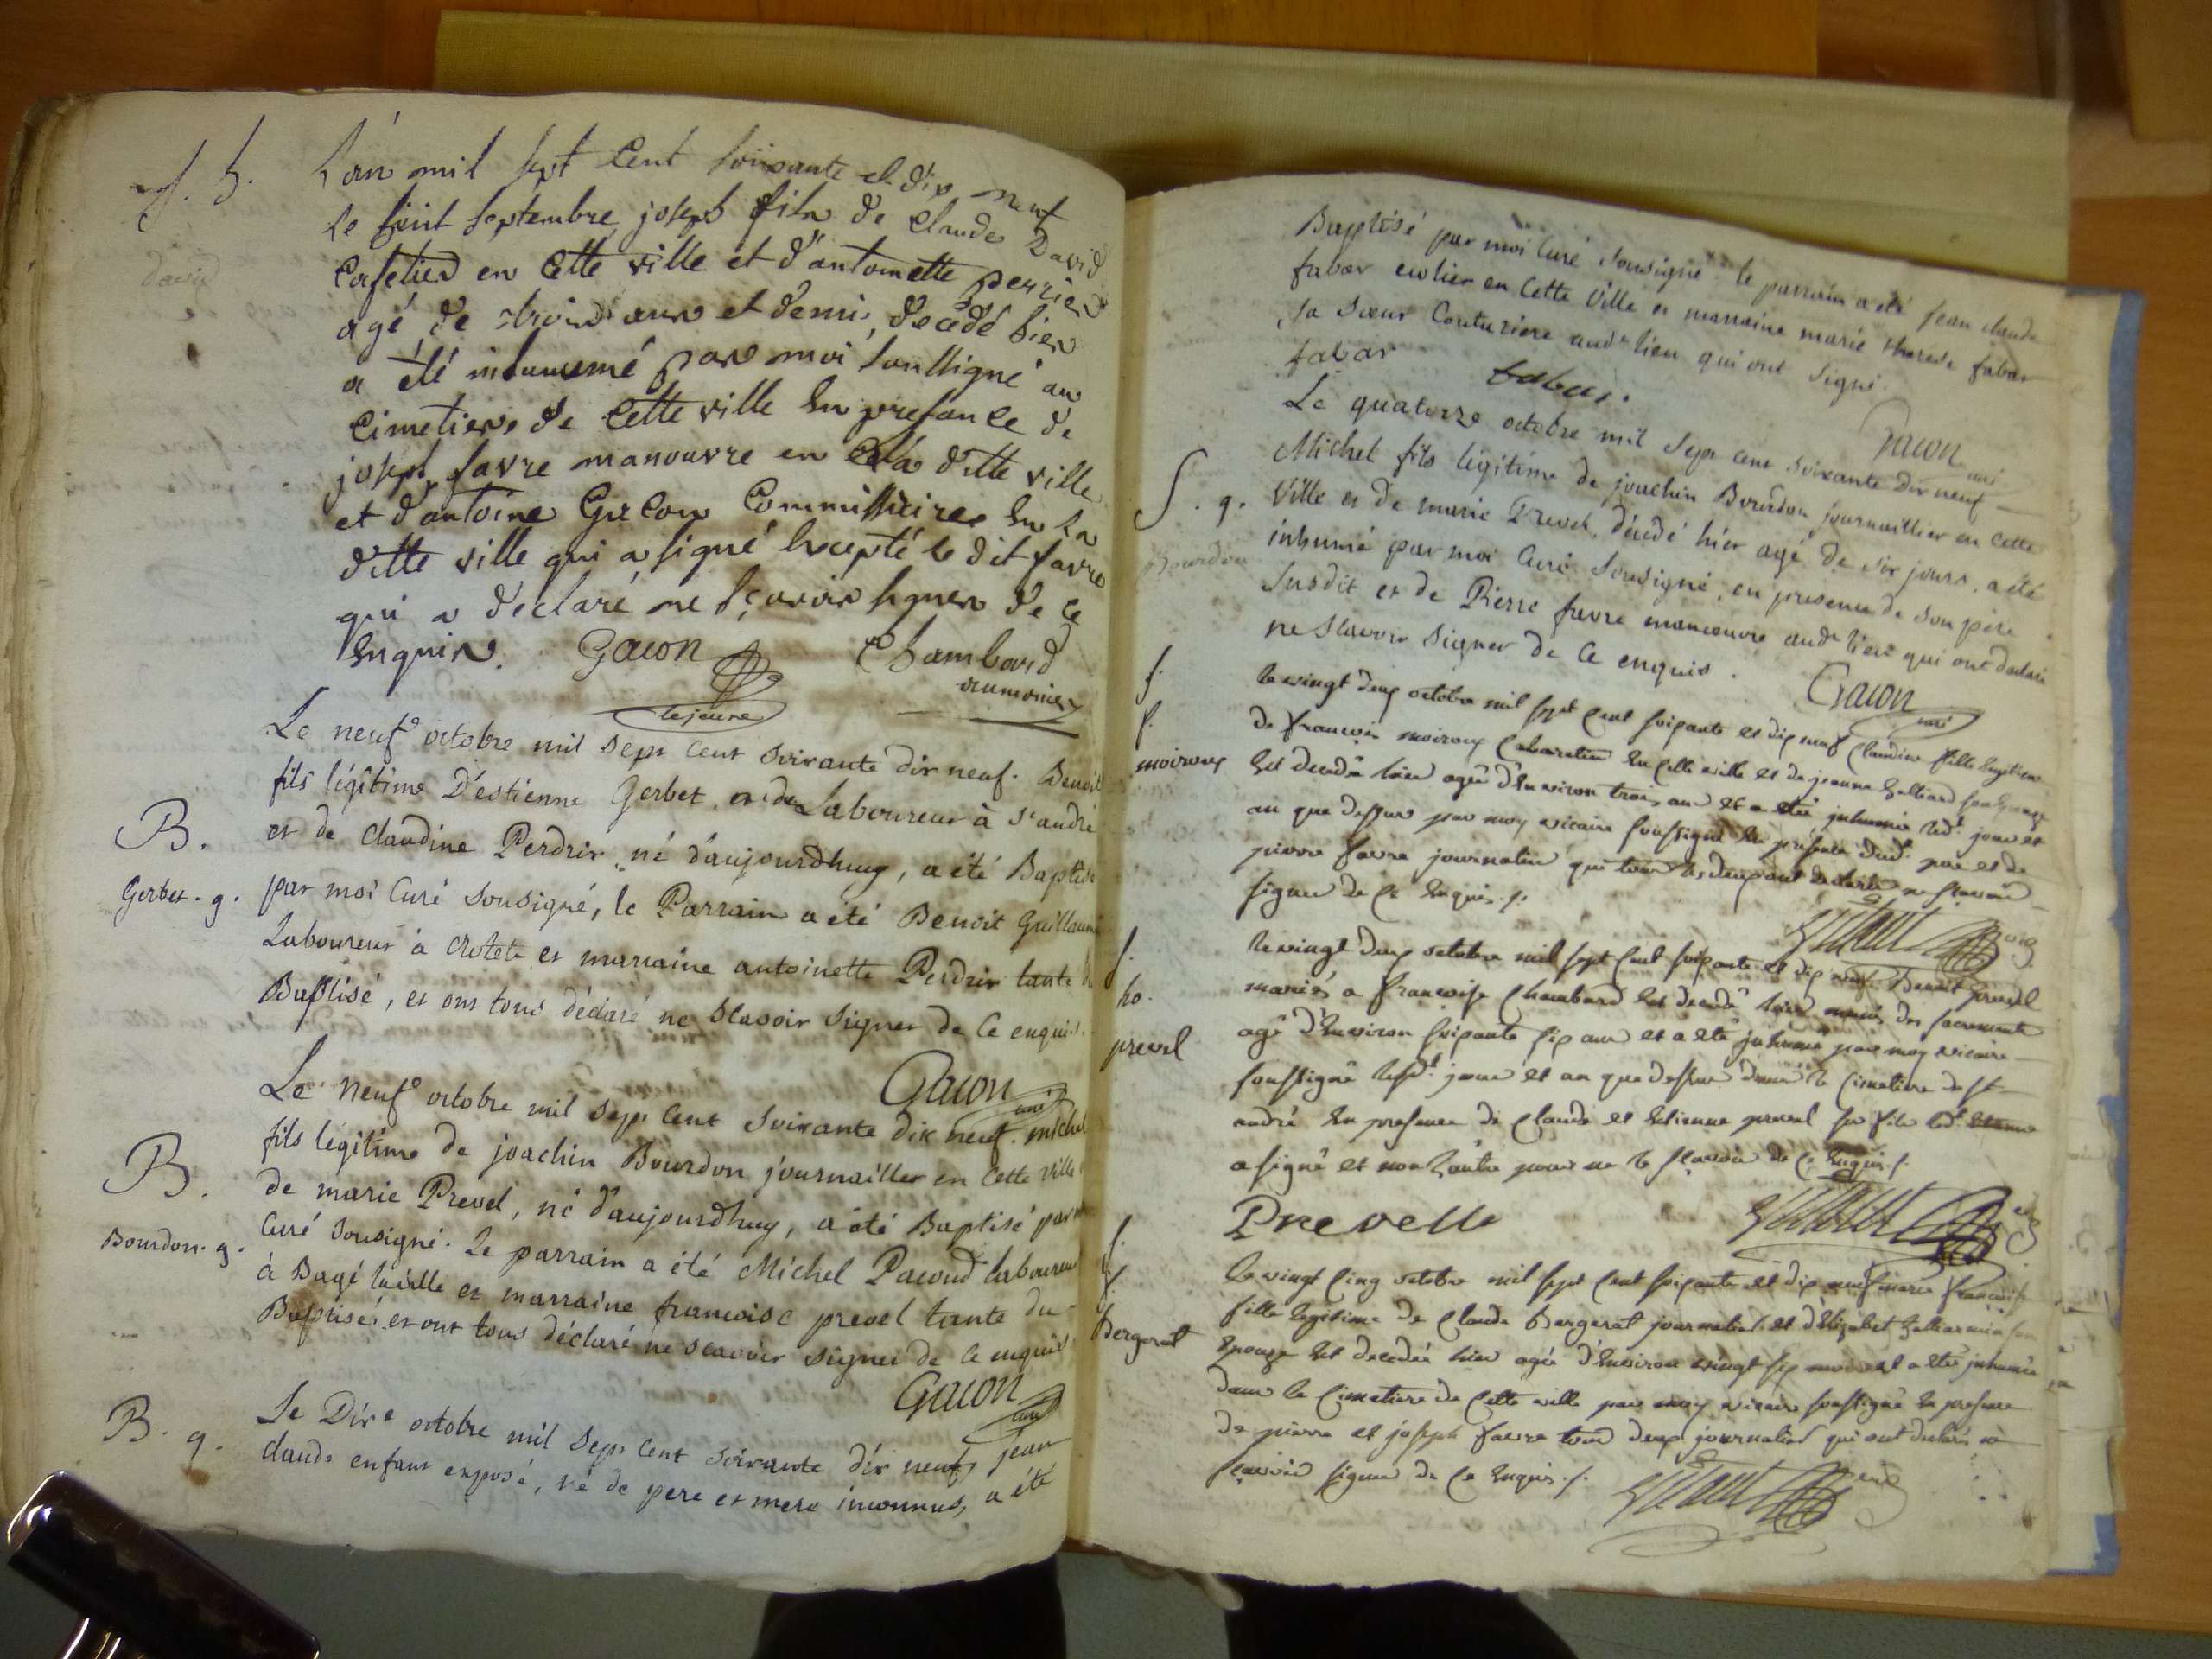 L'an mil sept Cent soixante et dix neuf
le septembre joseph fils de Claude David
Cafetier en Cette ville et d'antoinette perrier
agé de trois ans et demi, decedé hier
a été inhumé par moi soussigné au
Cimetiere de Cette ville en presance de
joseph favre manouvre en la ditte ville
et d'antoine Gacon Commissaire en la
ditte ville qui a signé Excepté le dit favre
qui a declaré ne sçavoir signer de ce
Enquis. Gacon Chambard
lejeune aumonier
david
Le neuf octobre mil sept cent soixante dix neuf. Benoit
fils légitime D'estienne Gerbet Laboureur à St andré
B.
et de Claudine Perdrix né d'aujourdhuy, a été Baptisé
Gerbet. g.
par moi Curé sousigné, le Parrain a été Benoit Guillaume
Laboureur à Crotet et marraine antoinette Perdrix tante du
Baptisé, et ont tous déclaré ne scavoir signer de ce enquis.
Gacon curé
Le neuf octobre mil sept cent soixante dix neuf. michel
fils légitime de joachin Bourdon journaillier en Cette ville
B.
de marie Prevel, né d'aujourdhuy, a été Baptisé par
Bourdon. g.
Curé sousigné. Le parrain a été Michel Pacoud laboureur
à Bagé laville et marraine francoise prevel tante du
Baptisé, et ont tous déclaré ne scavoir signer de ce enquis
Gacon curé
B. g.
Le Dix octobre mil sept cent soixante dix neuf, jean
claude enfant exposé, né de pere et mere inconnus, a été
Baptisé par moi Curé sousigné. le parrain a été jean claude
fabar ecolier en Cette Ville et marraine marie therese fabar
sa soeur Couturiere aud. lieu qui ont signé.
fabar fabar.
Gacon curé
Le quatorze octobre mil sept cent soixante dix neuf
Michel fils légitime de joachin Bourdon journaillier en Cette
S. g.
Ville et de marie Prevel, décédé hier agé de six jours, a été
Bourdon
inhumé par moi Curé sousigné, en presence de son père
susdit et de Pierre favre manoeuvre aud. lieu qui ont declaré
ne scavoir signer de ce enquis.
Gacon curé
f.
f.
moiroux
le vingt deux octobre mil sept cent soixante et dix neuf Claudine fille legitime
de francois moiroux Cabaretier en cette ville et de jeanne
Est decedée hier agée d'Environ trois ans et a été inhumée led. jour et
an que dessus par moy vicaire soussigné en présence dud. père et de
pierre favre journalier qui tous les deux ont declaré ne scavoir
signer de ce Enquis./.
f.
ho.
prevel
le vingt deux octobre mil sept cent soixante et dix neuf Benoit prevel
marié a francoise Chambard Est decedé hier munis des sacrements
agé d'Environ soixante six ans et a été inhumé par moy vicaire
soussigné jour et an que dessus dans le Cimetiere de st
andré En presence de Claude et Estienne prevel
a signé et non l'autre pour ne le scavoir de ce Enquis./.
Prevelle
f.
f.
Bergerat
le vingt cinq octobre mil sept cent soixante et dix neuf marie francoise
fille legitime de Claude Bergerat journalier et d'Elizabet
Epouze Est decedée hier agée d'Environ vingt six mois et a été inhumée
dans le Cimetiere de Cette ville par moy vicaire soussigné En presence
de pierre et joseph favre tous deux journalier qui ont declaré ne
scavoir signer de ce Enquis./.